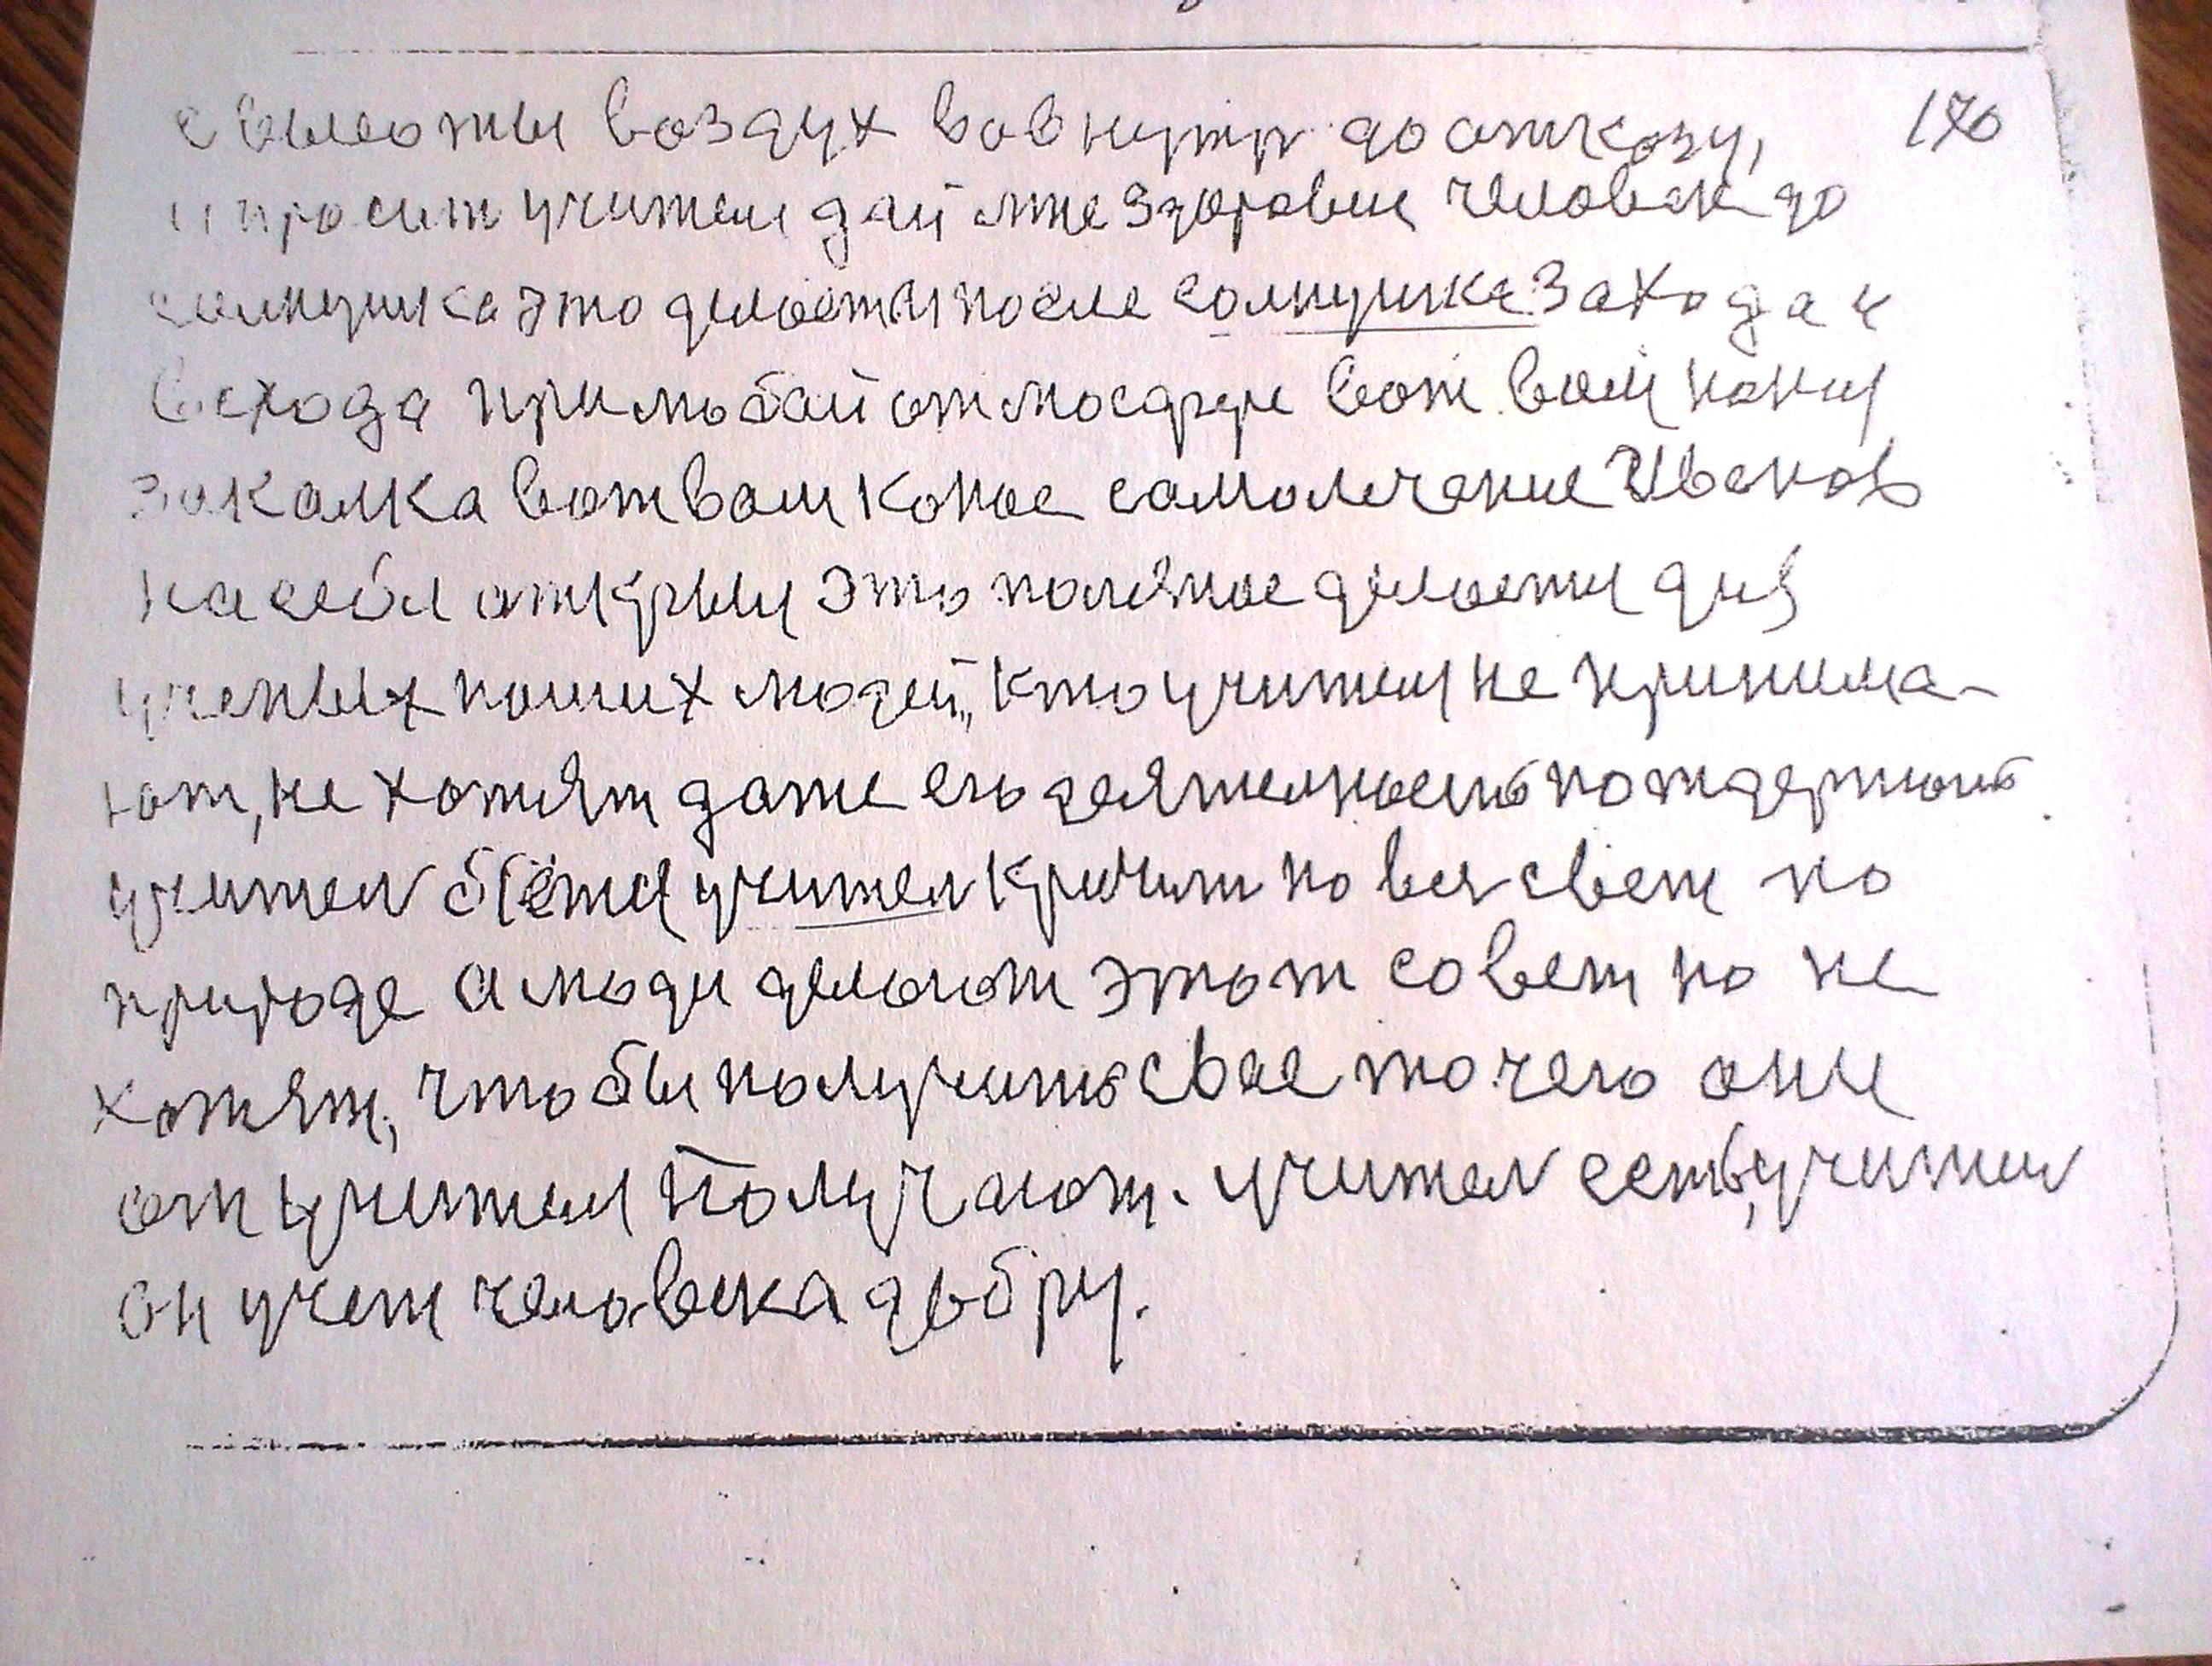 с высоты воздух вовнутр до отказу, 170
и просит учители дай мне здоровие человек до
солнушка это делается после солнушка захода и
всхода при любой отмосфере вот вам наша
закалка вот вам коное самолечение Иванов
на себя открыл это полезное делается для
ученых наших людей, кто учителя не принима-
ют, не хотят даже его деятелность потдержать
учител бется учител кричит на вся свет по
природе а люди делают этот совет но не
хотят, что бы получить свае то чего они
от учителя получают. учител есть, учител
он учет человека добру.